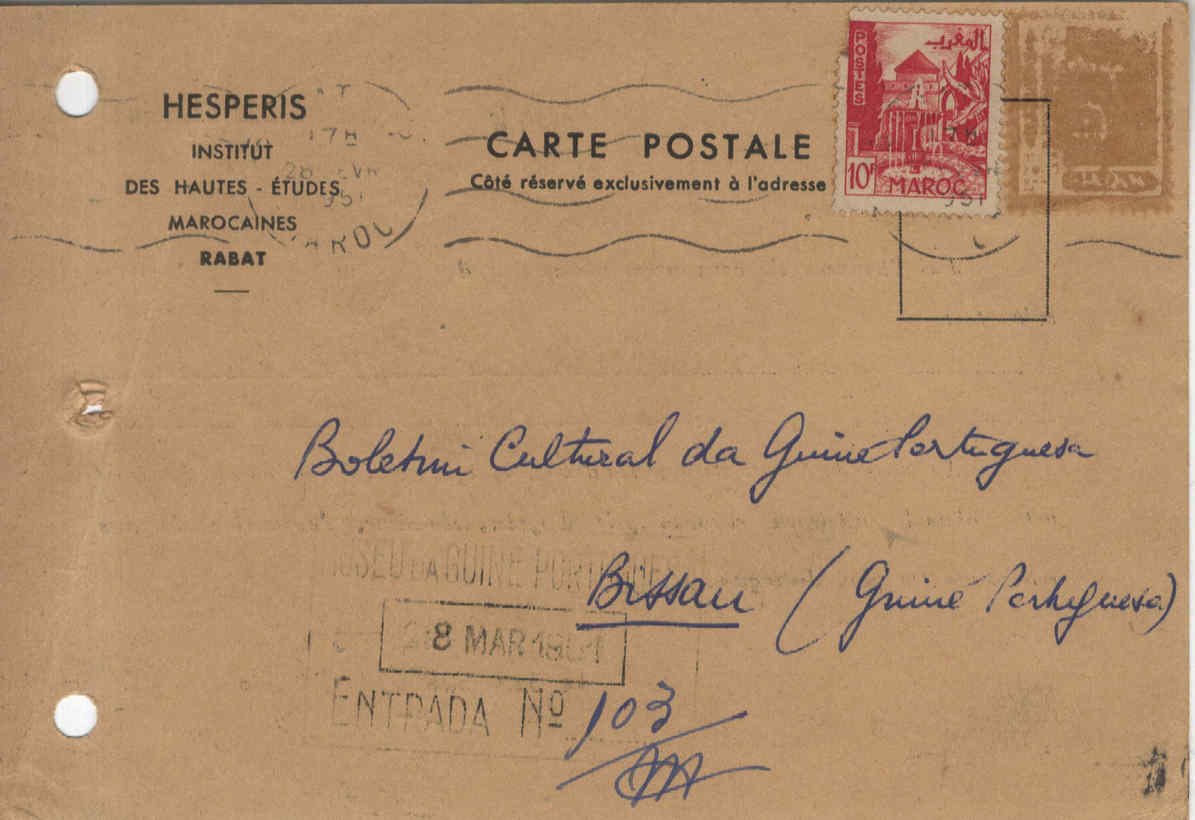 HESPERIS
INSTITUT
DES HAUTES - ÉTUDES
MAROCAINES
RABAT
CARTE POSTALE
Côté réservé exclusivement à l'adresse
POSTES
المغرب
10F
MAROC
17H
28
951
MAROC
Boletim Cultural da Guiné Portuguesa
Bissau (Guiné Portuguesa)
MUSEU DA GUINÉ PORTUGUESA
8 MAR 1951
ENTRADA Nº 103